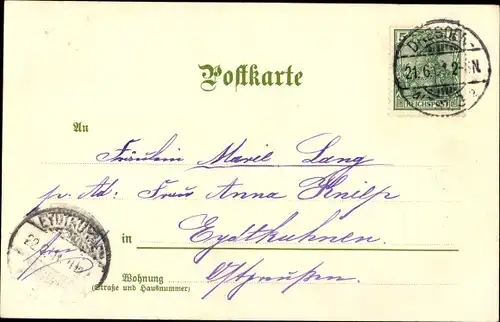 DRESDEN-
21.6.
REICHSPOST
Postkarte
An
Fräulein Marie Lang
pr. Ad: Frau Anna Knilp
in Eydtkuhnen
EYDTKUHNEN
Wohnung Ostpreußen.
(Straße und Hausnummer)